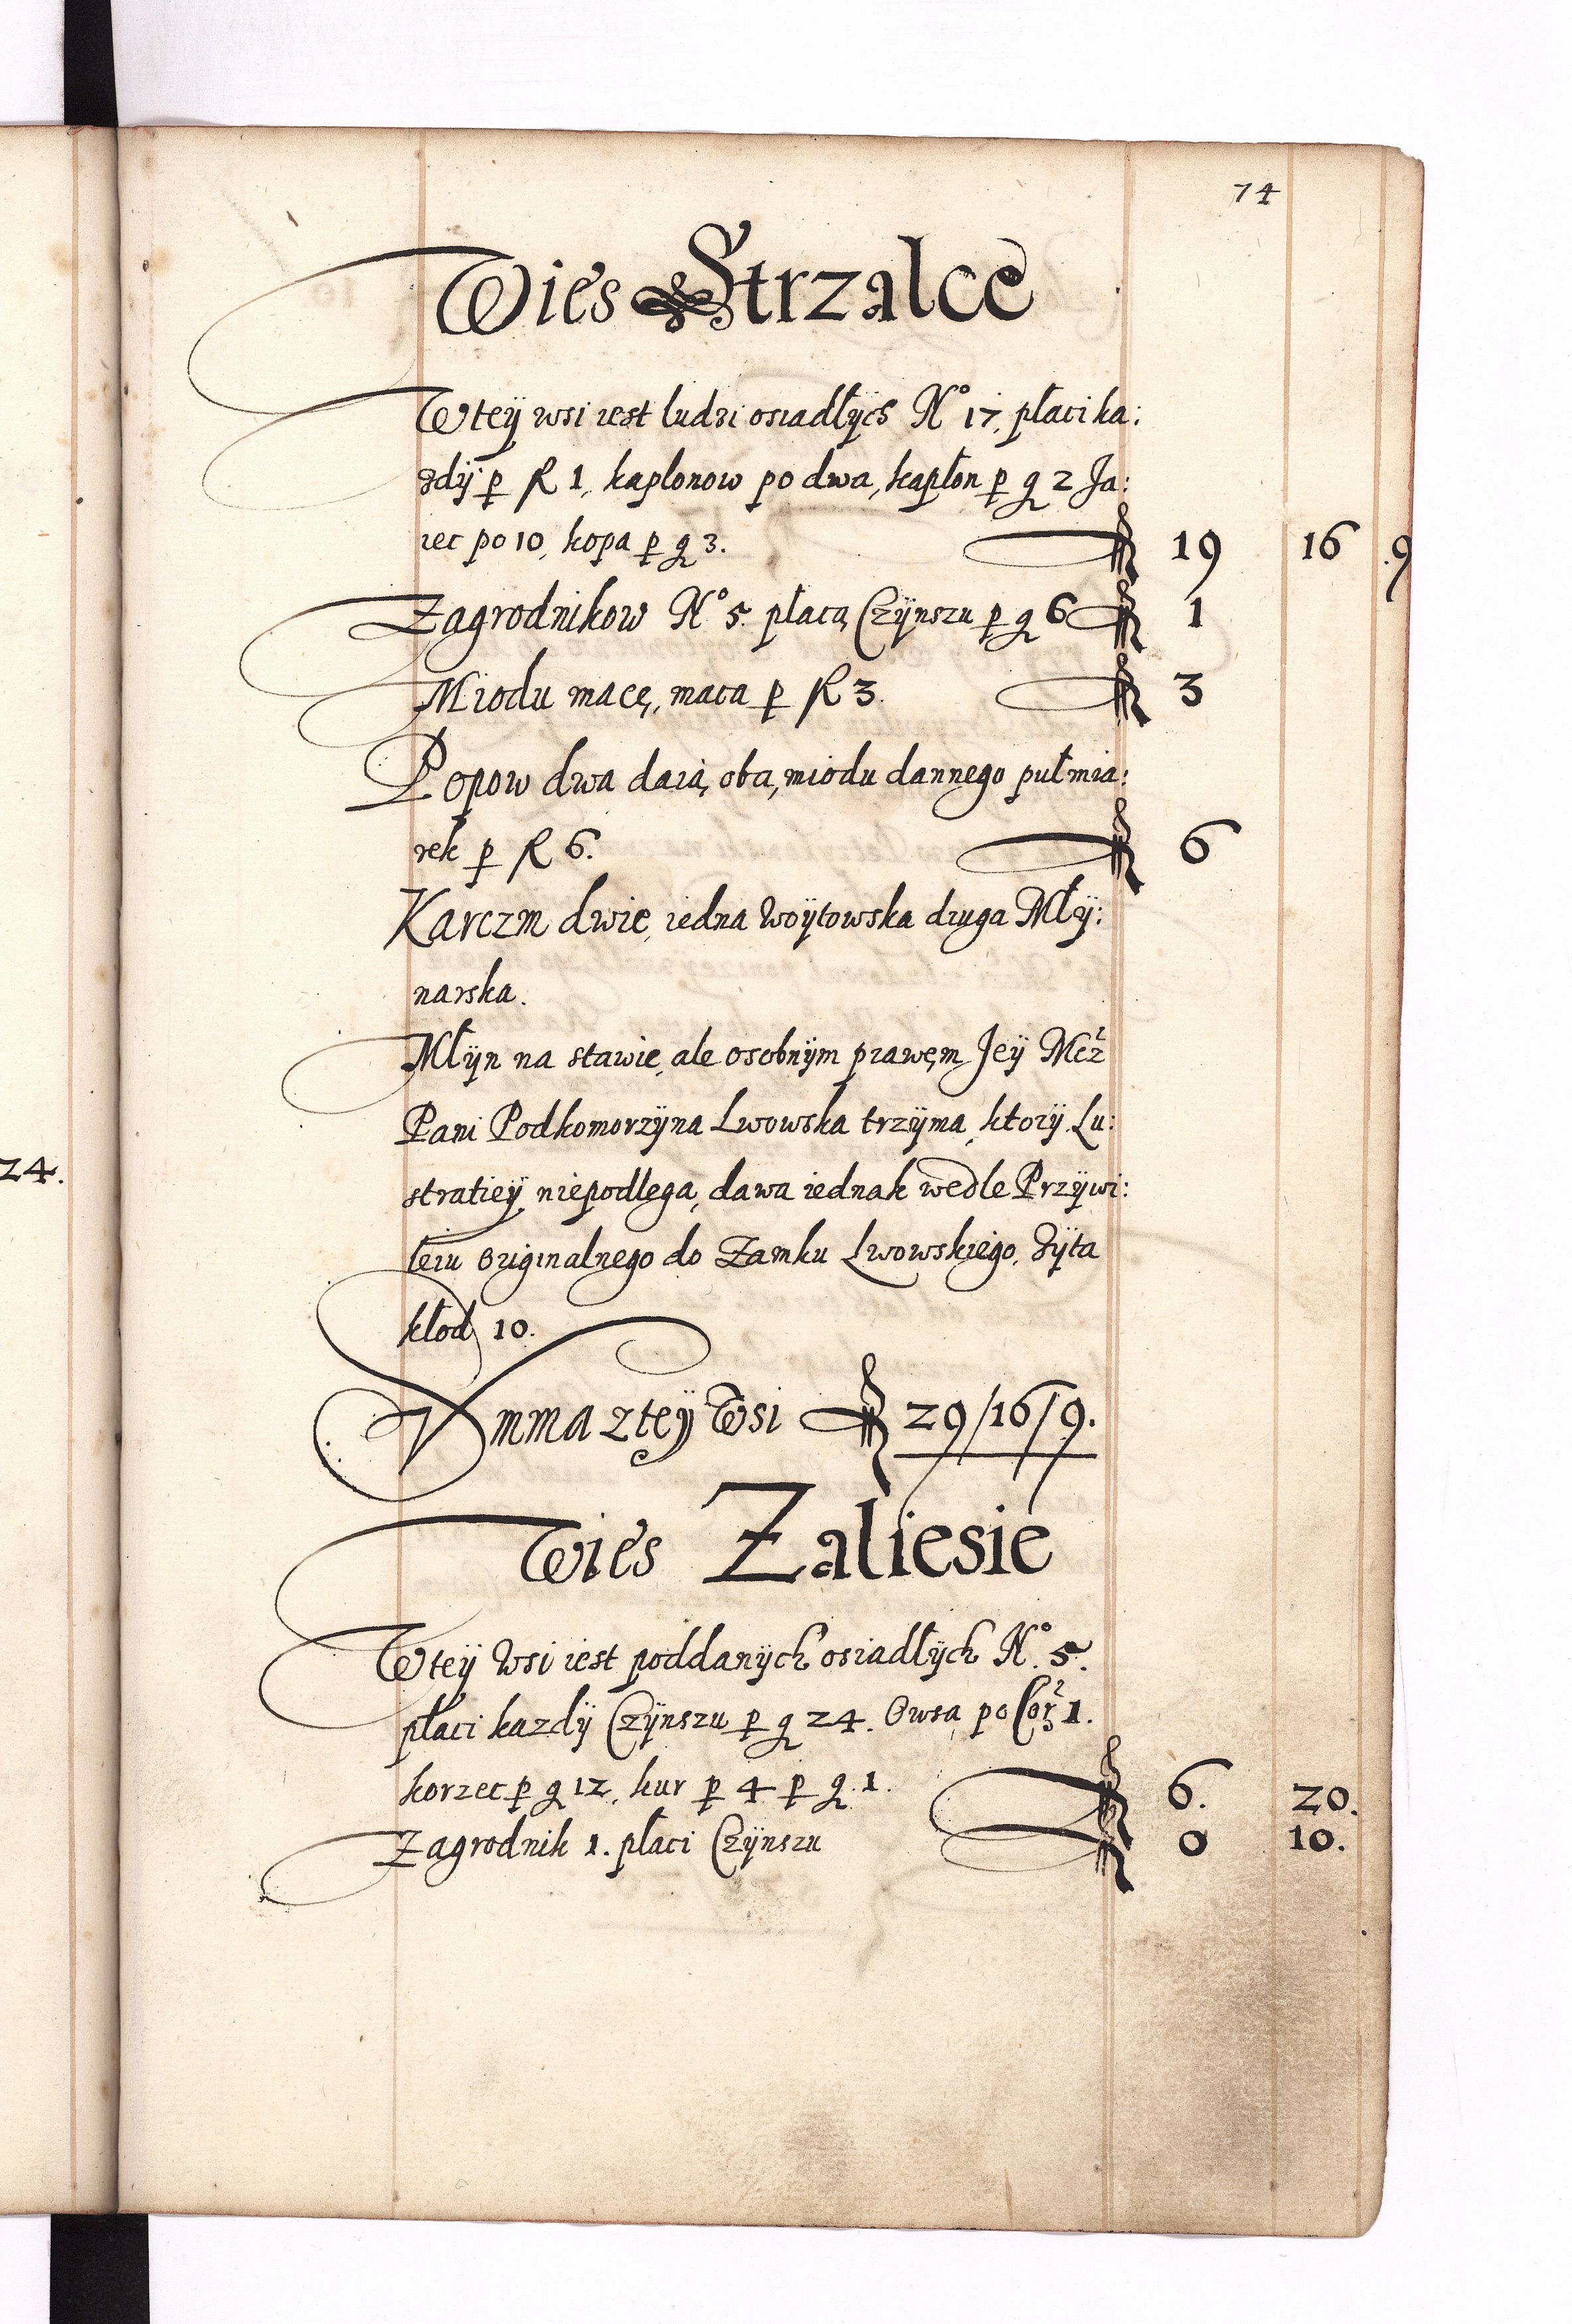 74
Wies Strzalce
Wteÿ wsi iest ludzi osiadłÿch No 17, płaci ka:
zdÿ p R 1, kaplonow po dwa, kapłon p g 2 Ja:
iec po 10, kopa p g 3. 19 16 9
Zagrodnikow No 5. płaca Czÿnszu p g 6 1
Miodu macę, maca p R 3. 3
Popow dwa daią, oba, miodu dannego pułmia:
rek p R 6. 6
Karczm dwie, iedna Woÿtowska druga Młÿ:
narska.
Młÿn na stawie, ale osobnÿm prawem Jeÿ Mcz
Pani Podkomorzÿna Lwowska trzÿma, ktorÿ Lu:
stratieÿ niepodlega, dawa iednak wedle Przÿwi:
leiu Originalnego do Zamku Lwowskiego, Zÿta
kłod 10.
Summa zteÿ Wsi 29/16/9.
24.
Wies Zaliesie
Wteÿ Wsi iest poddanÿch osiadłÿch No. 5.
płaci kazdÿ Czÿnszu p g 24. Owsa po Cor 1.
korzec p g 12, kur p 4 p g 1. 6. 20.
Zagrodnik 1. płaci Czÿnszu 0 10.